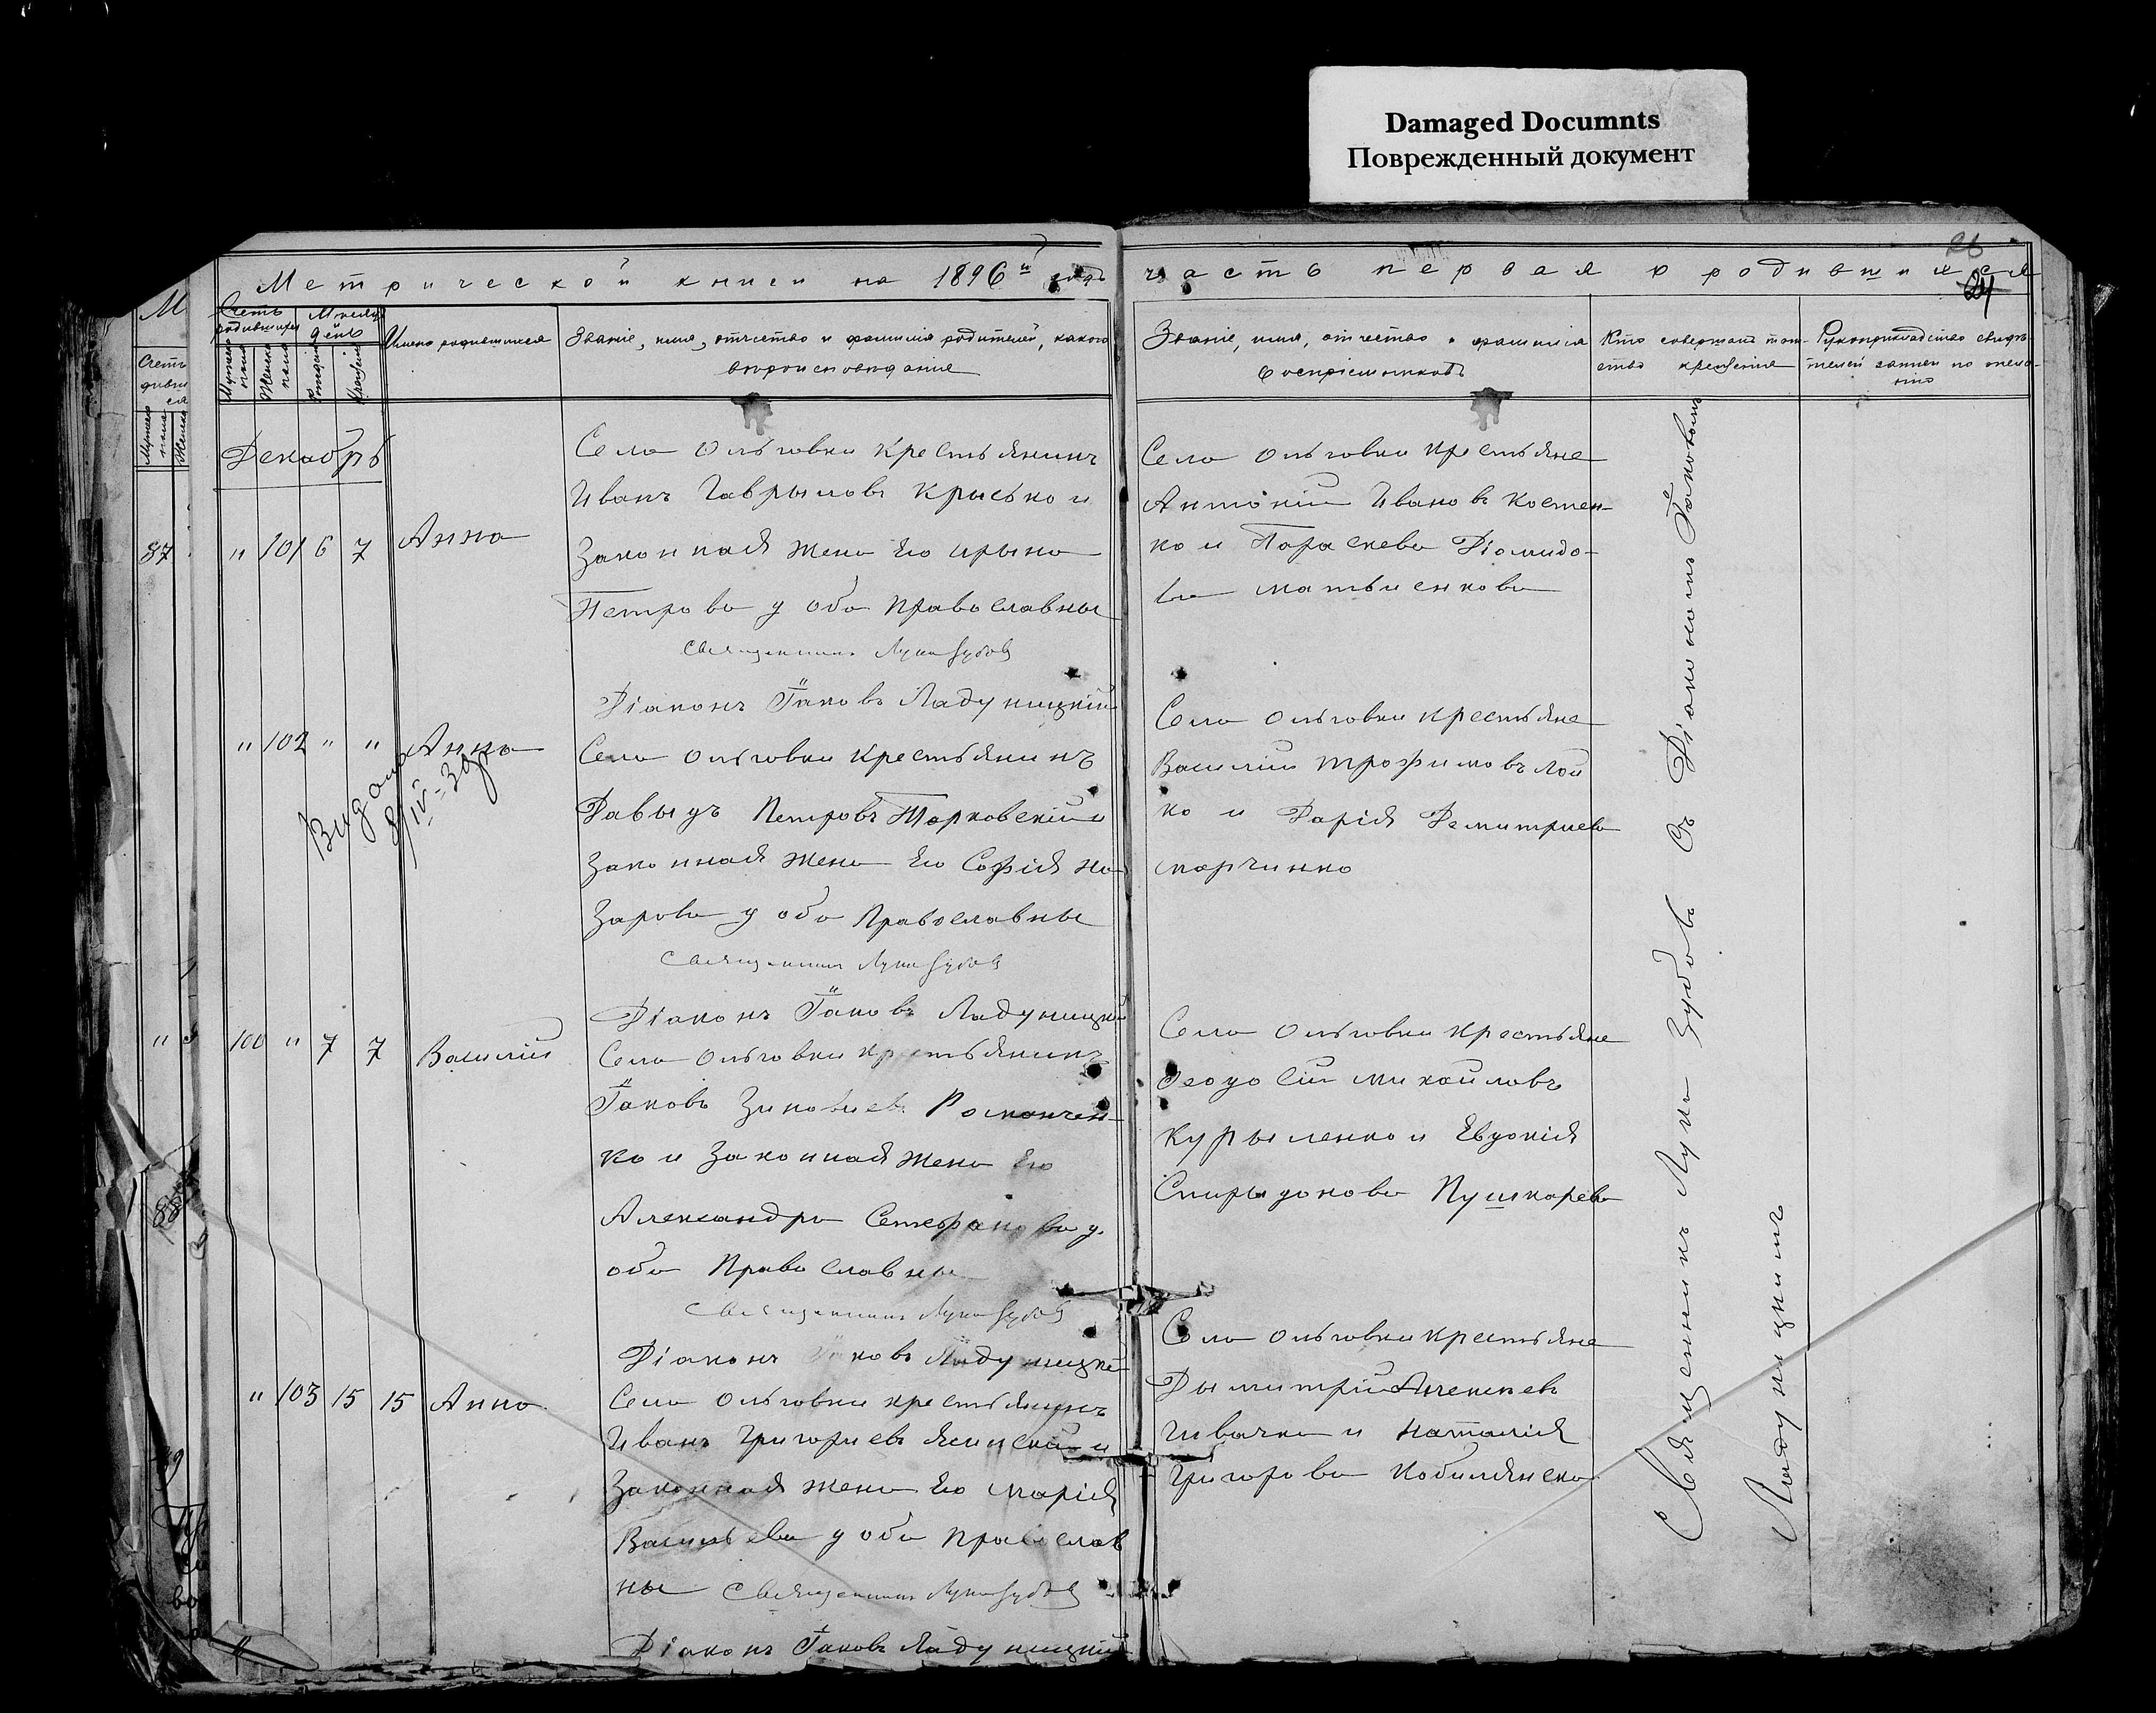 Damaged Documnts
Поврежденный документ
Метрической книги на 1896й годъ
часть первая о родившихся
26
24
М
Счетъ
87
Счетъ родившихся
Мужеска пола
Женска пола
Месяцъ и день
Рожденія
Крещенія
Имена родившихся
Званіе, имя, отчество и фамилія родителей, какого
вероисповеданія
Званіе, имя, отчество и фамилія
воспріемниковъ
Кто совершалъ таин-
ство крещенія
Рукоприкладство свиде-
телей записи по жела-
нію
Декабрь
" 101 6 7 Анна
Села Ольговки Крестьянинъ
Иванъ Гаврыловъ Крысько и
Законная жена Его Ирына
Петрова у оба Православны
Священникъ Лука Зубовъ
Діаконъ Іаковъ Ладуницкій
Села Ольговки крестьяне
Антоній Ивановъ Костен-
ко и Параскева Діомидо-
ва Матвиенкова
" 102 " " Анна
Видана
8/IV-39р
Села Ольговки крестьянинъ
Давыдъ Петровъ Тарковскій и
Законная жена Его Софія На-
зарова у оба Православны
Священникъ Лука Зубовъ
Діаконъ Іаковъ Ладуницкій
Села Ольговки крестьяне
Василій Трофимовъ Лой
ко и Дарія Демитриева
Марчинко
100 " 7 7 Василій
Села Ольговки крестьянинъ
Іаковъ Зиновиевъ Романчен-
ко и Законная жена Его
Александра Стефанова у
оба Православны
Священникъ Лука Зубовъ
Діаконъ Іаковъ Ладуницкій
Села Ольговки крестьяне
Феодосій Михайловъ
Курыленко и Евдокія
Спиридонова Пушкарева
" 103 15 15 Анна
Села Ольговки крестьянинъ
Иванъ Григориевъ Ясинскій и
Законная жена Его Марія
Васильева у оба Православ
ны Священникъ Лука Зубовъ
Діаконъ Іаковъ Ладуницкій
Села Ольговки крестьяне
Дымитрій Алексеевъ
Шевачка и Наталія
Григорова Кобилянска
Священникъ Лука Зубовъ Съ Діакономъ Іаковомъ
Ладуницкимъ